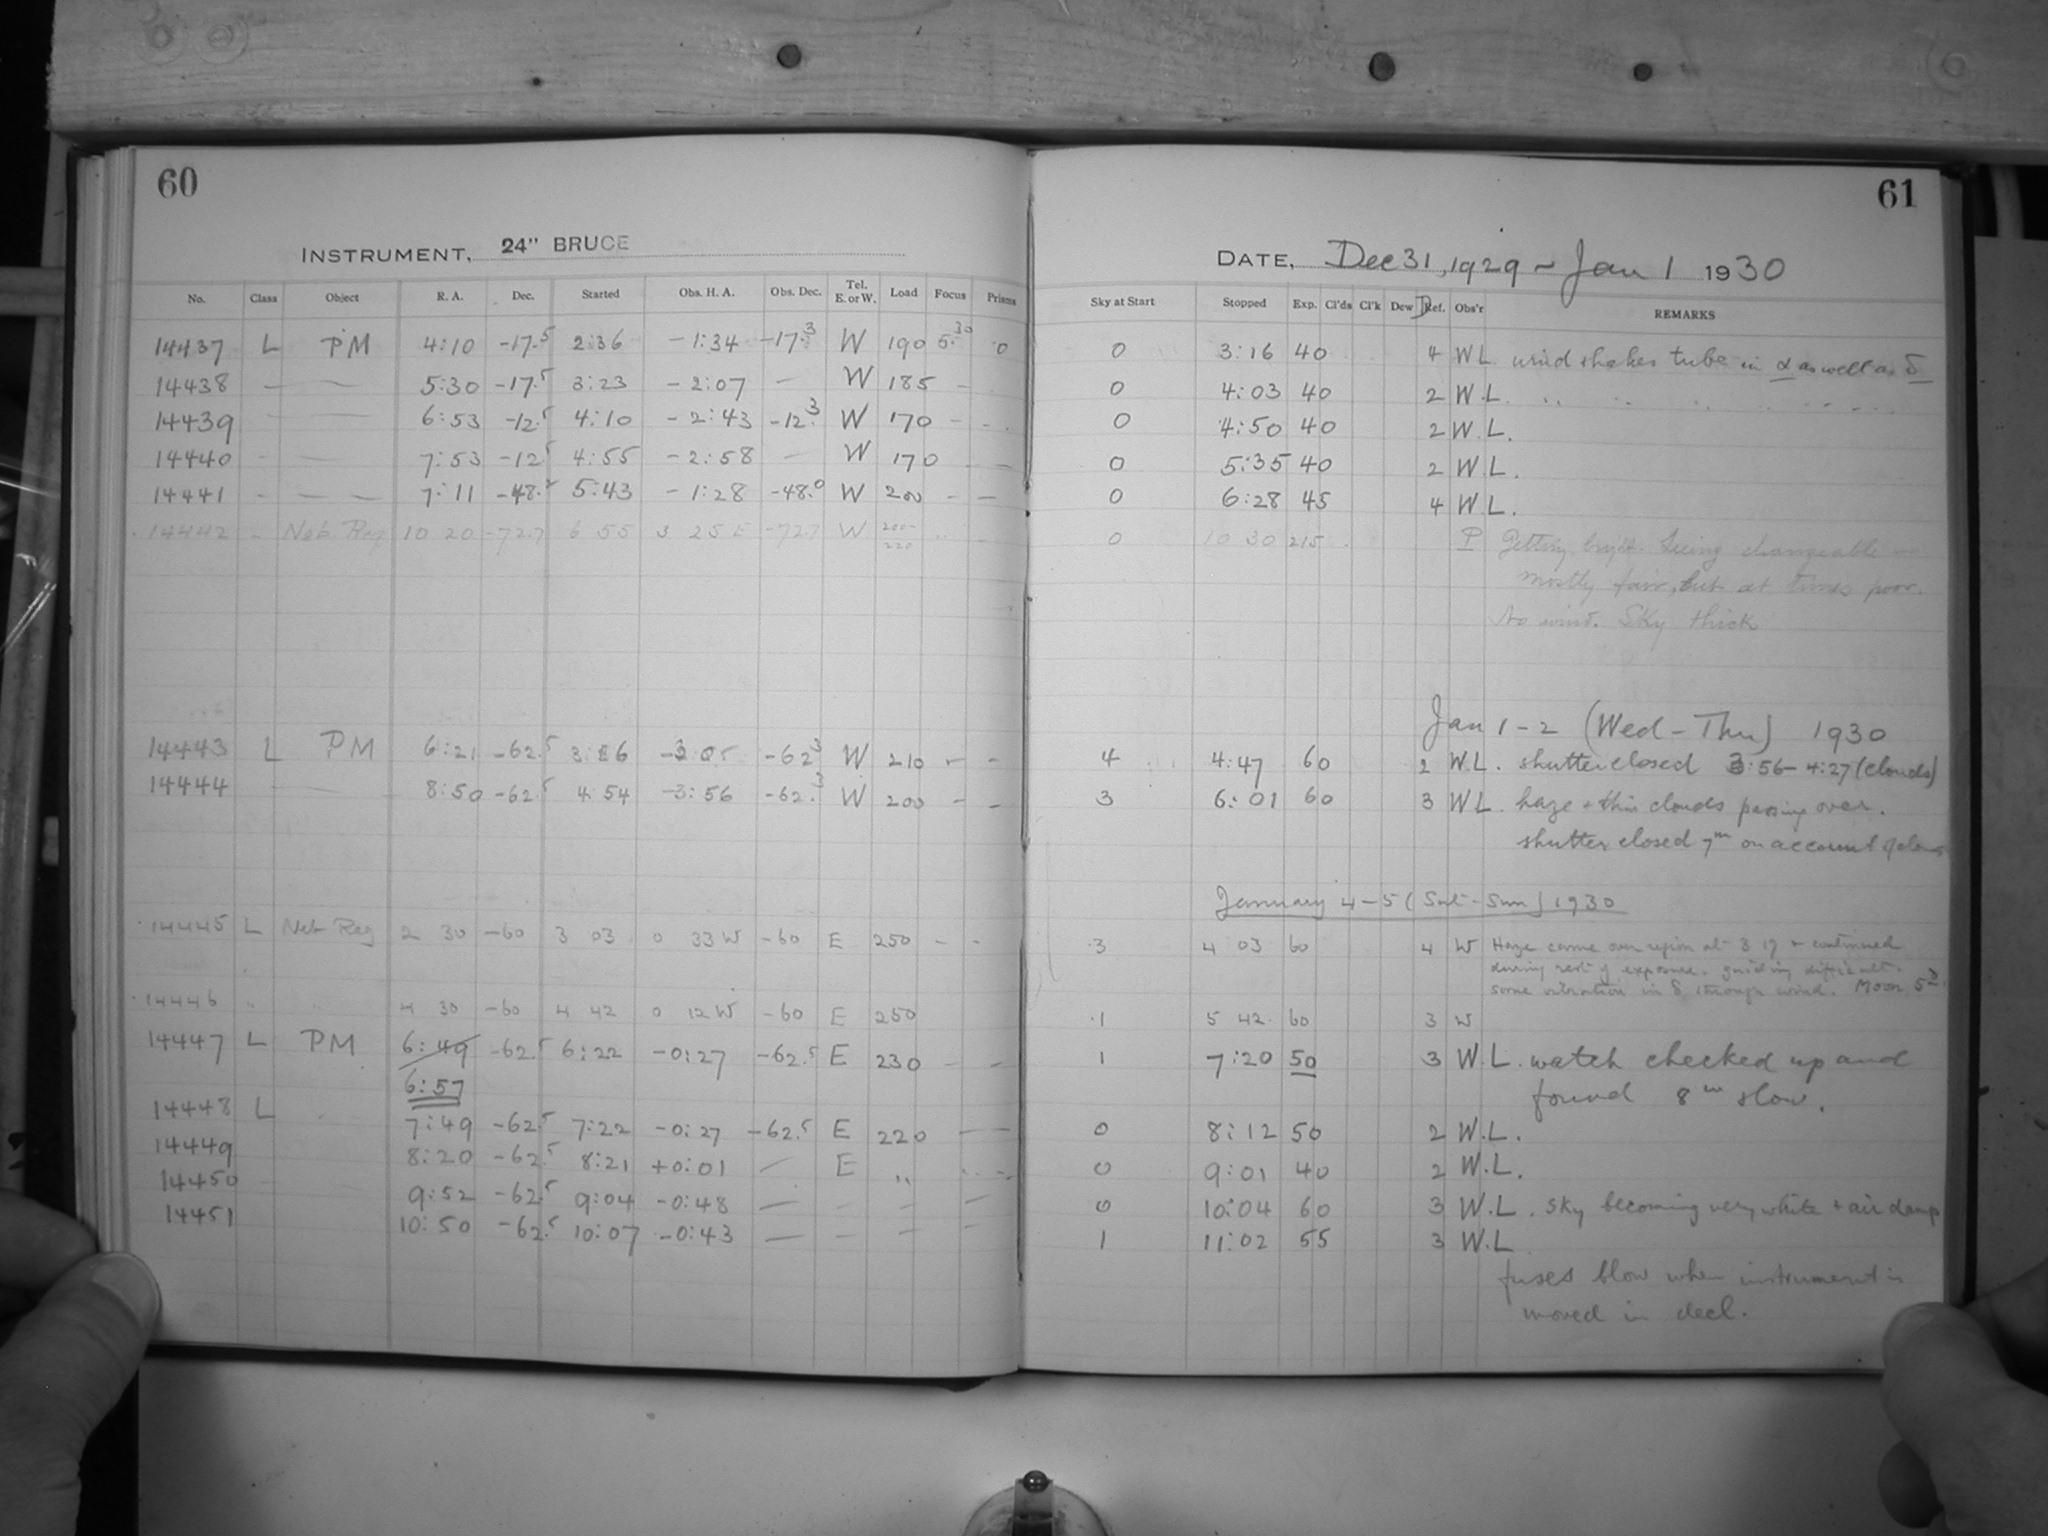 60
INSTRUMENT, 24" BRUCE
No. Class Object R. A. Dec. Started Obs. H. A. Obs. Dec. Tel. E. or W. Load Focus Prisms
14437 L PM 4:10 -17.5 2:36 -1:34 -17.3 W 190 5.30 0
14438 — — 5:30 -17.5 3:23 -2:07 — W 185 -
14439 6:53 -12.5 4:10 -2:43 -12.3 W 170 - -
14440 - — 7:53 -12.5 4:55 -2:58 — W 170
14441 - — — 7:11 -48. 5:43 -1:28 -48.0 W 200 - —
14442 Neb Reg 10 20 -72.7 6 55 3 25 E -72.7 W 200-220
14443 L PM 6:21 -62.5 -62.3 W 210 - -
14444 8:50 -62.5 4:54 -3:56 -62.3 W 200 - -
14445 L Neb Reg 2 30 -60 3 03 0 33 W -60 E 250 - -
14446 " 4 30 -60 4 42 0 12 W -60 E 250
14447 L PM 6:49 -62.5 6:22 -0:27 -62.5 E 230 - -
6:57
14448 L 7:49 -62.5 7:22 -0:27 -62.5 E 220 — —
14449 8:20 -62.5 8:21 +0:01 — E "
14450 9:52 -62.5 9:04 -0:48 — — — —
14451 10:50 -62.5 10:07 -0:43 — — — —
61
DATE, Dec 31, 1929 ~ Jan 1 1930
Sky at Start Stopped Exp. Cl'ds Cl'k Dew Ref. Obs'r REMARKS
0 3:16 40 4 WL wind shakes tube in α as well as δ
0 4:03 40 2 W.L. " " " " " "
0 4:50 40 2 W.L.
0 5:35 40 2 W.L.
0 6:28 45 4 W.L.
0 10 30 215 P Getting bright. Seeing changeable —
mostly fair, but at times poor.
No wind. Sky thick
Jan 1-2 (Wed-Thu) 1930
4 4:47 60 2 W.L. shutter closed 3:56-4:27 (clouds)
3 6:01 60 3 WL. haze + thin clouds passing over.
shutter closed 7m on account of
January 4-5 (Sat-Sun) 1930
3 4 03 60 4 W Haze came over region at 3 17 + continued
during rest of exposure. guiding difficult.
some vibration in δ through wind. Moon 5d
1 5 42 60 3 W
1 7:20 50 3 W.L. watch checked up and
found 8m slow.
0 8:12 50 2 W.L.
0 9:01 40 2 W.L.
0 10:04 60 3 W.L. sky becoming very white + air damp
1 11:02 55 3 W.L
fuses blow when instrument is
moved in decl.